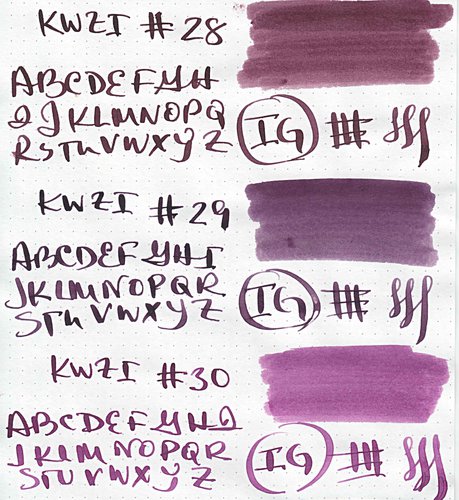 KWZI #28
ABCDEFGH
IJKLMNOPQ
RSTUVWXYZ
IG
KWZI #29
ABCDEFGHI
JKLMNOPQR
STUVWXYZ
IG
KWZI #30
ABCDEFGHI
JKLMNOPQR
STUVWXYZ
IG